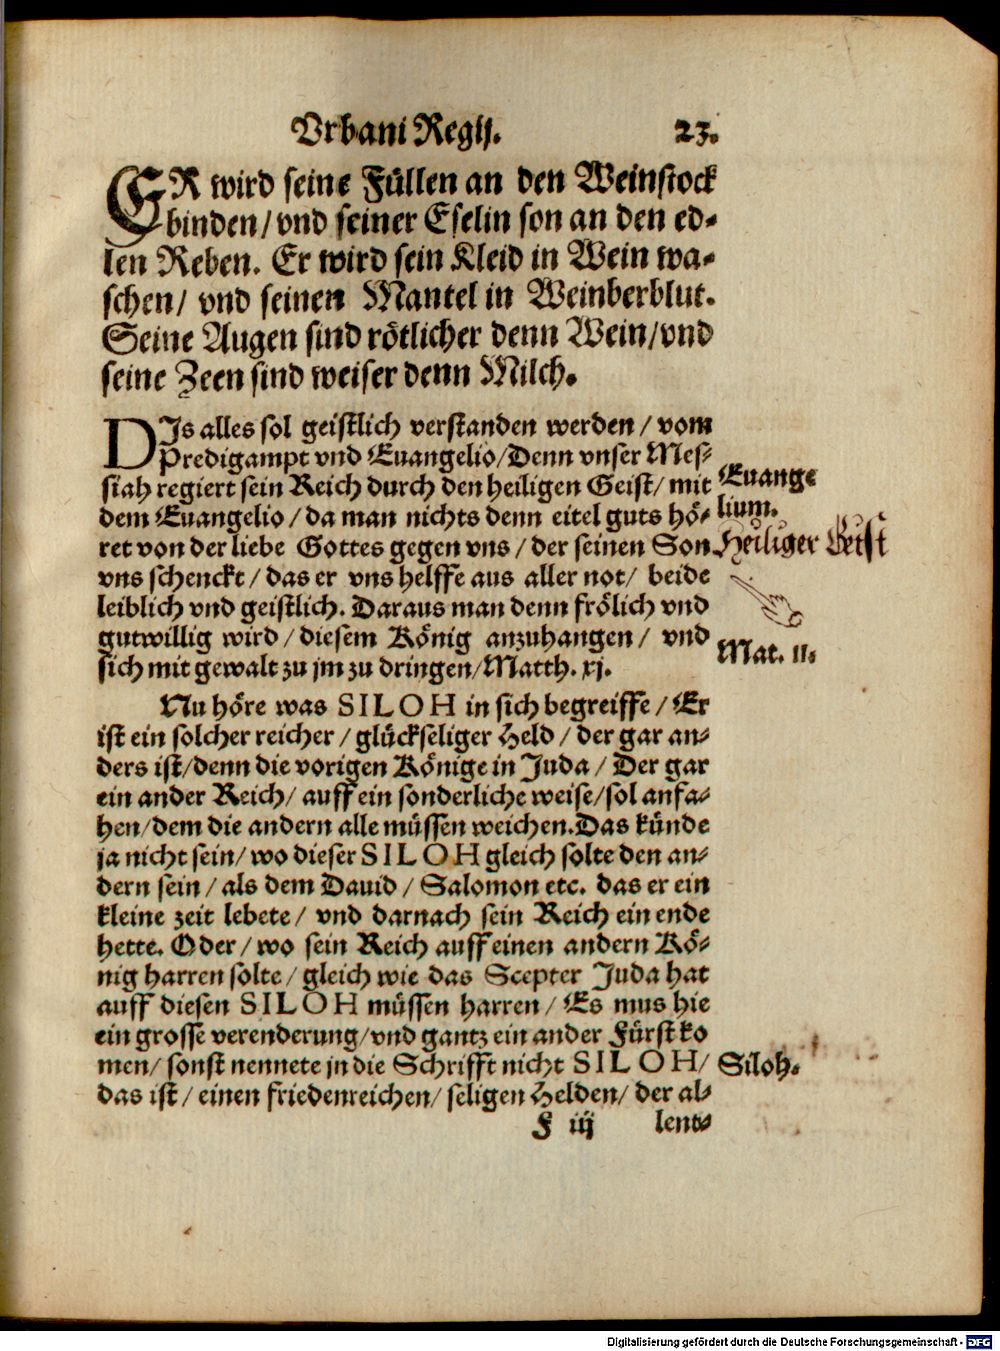 Vrbani Regij. 23.
ER wird seine Füllen an den Weinstock
binden/vnd seiner Eselin son an den ed-
len Reben. Er wird sein Kleid in Wein wa-
schen/ vnd seinen Mantel in Weinberblut.
Seine Augen sind rötlicher denn Wein/vnd
seine Zeen sind weiser denn Milch.
DJs alles sol geistlich verstanden werden/ vom
Predigampt vnd Euangelio/Denn vnser Mes-
siah regiert sein Reich durch den heiligen Geist/ mit
Euange
dem Euangelio/ da man nichts denn eitel guts hö-
lium.
ret von der liebe Gottes gegen vns/ der seinen Son
Heiliger Geist
vns schenckt/ das er vns helffe aus aller not/ beide
leiblich vnd geistlich. Daraus man denn frölich vnd
gutwillig wird/ diesem König anzuhangen/ vnd
Mat. 11.
sich mit gewalt zu jm zu dringen/Matth. xj.
Nu höre was SILOH in sich begreiffe/ Er
ist ein solcher reicher/ glückseliger Held/ der gar an-
ders ist/denn die vorigen Könige in Juda/ Der gar
ein ander Reich/ auff ein sonderliche weise/sol anfa-
hen/dem die andern alle müssen weichen.Das künde
ja nicht sein/ wo dieser SILOH gleich solte den an-
dern sein/ als dem Dauid/ Salomon etc. das er ein
kleine zeit lebete/ vnd darnach sein Reich ein ende
hette. Oder/ wo sein Reich auff einen andern Kö-
nig harren solte/ gleich wie das Scepter Juda hat
auff diesen SILOH müssen harren/ Es mus hie
ein grosse verenderung/vnd gantz ein ander Fürst ko
men/ sonst nennete jn die Schrifft nicht SILOH/
Siloh.
das ist/ einen friedenreichen/ seligen Helden/ der al-
F iij lent-
Digitalisierung gefördert durch die Deutsche Forschungsgemeinschaft - DFG